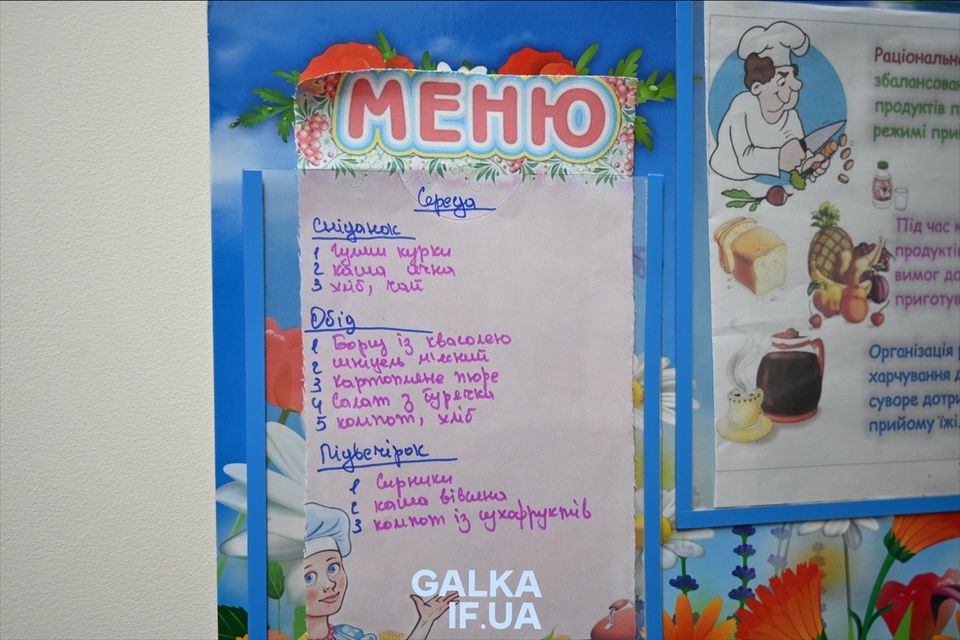 МЕНЮ
Середа
Сніданок
1 Гуляш курки
2 каша ячна
3 хліб, чай
Обід
1 Борщ із квасолею
2 шніцель м'ясний
3 Картопляне пюре
4 Салат з бурячка
5 компот, хліб
Підвечірок
1 Сирники
2 каша вівсяна
3 компот із сухофруктів
Раціональн
збалансован
продуктів п
режимі прий
Під час к
продуктів
вимог до
приготув
Організація р
харчування д
суворе дотри
прийому їжі
GALKA
IF.UA